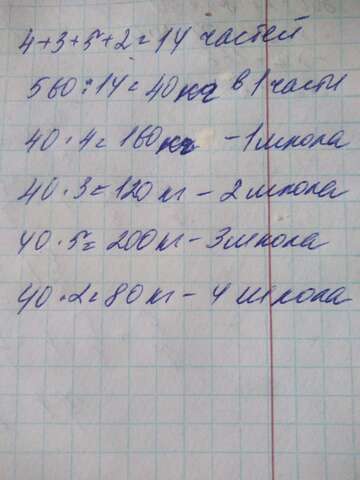 4+3+5+2=14 частей
560:14=40кг в 1 части
40·4=160кг - 1 школа
40·3=120кг - 2 школа
40·5=200кг - 3 школа
40·2=80кг - 4 школа